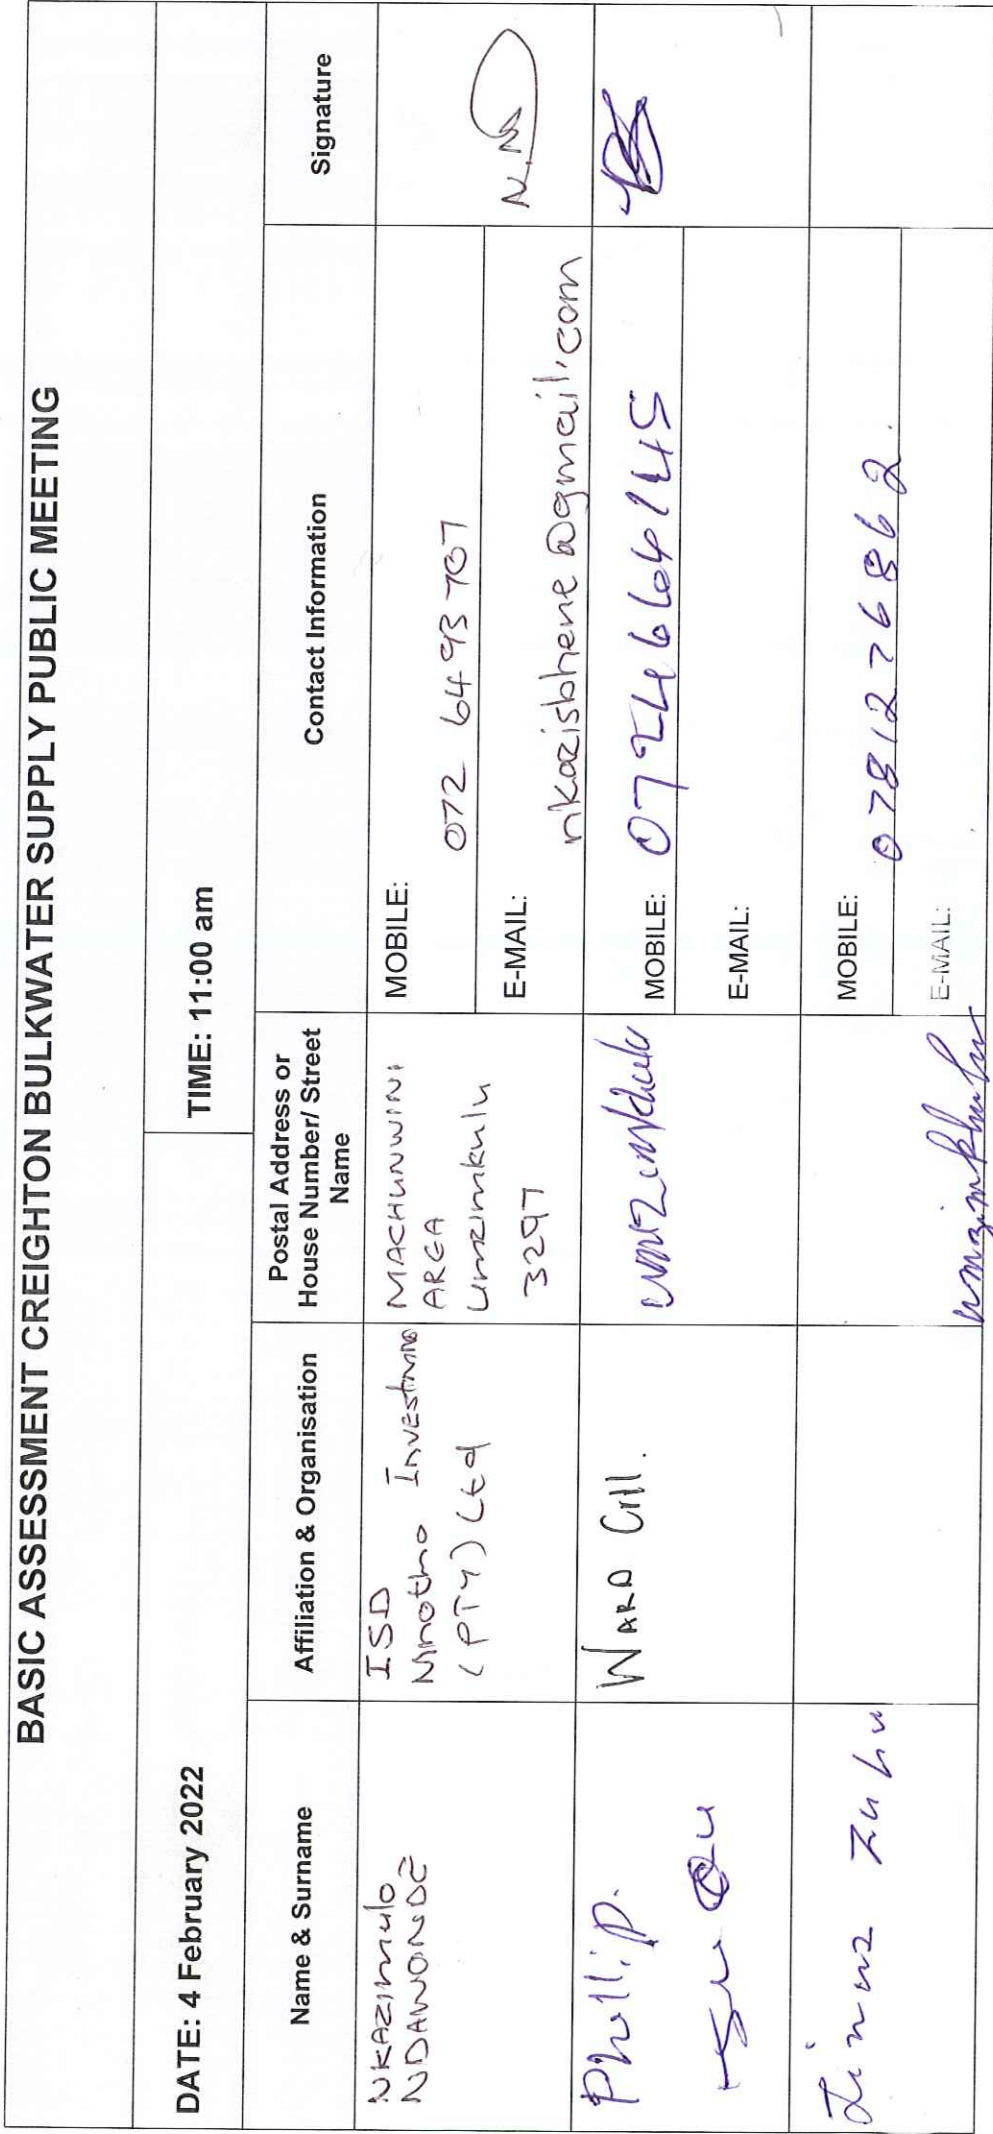 BASIC ASSESSMENT CREIGHTON BULKWATER SUPPLY PUBLIC MEETING
DATE: 4 February 2022
TIME: 11:00 am
Name & Surname
Affiliation & Organisation
Postal Address or
House Number/ Street
Name
Contact Information
Signature
NKAZIMULO
NDAWONDE
ISD
Nnotho Investmns
(PTY) Ltd
MACHUNWINI
AREA
Umzimkulu
3297
MOBILE:
072 6493 707
E-MAIL:
nkazisbhene@gmail.com
N.N
Phillip.
WARD Cill.
umzimkhulu
MOBILE:
E-MAIL:
Zulu
umzimkhulu
MOBILE:
0781276862.
E-MAIL: